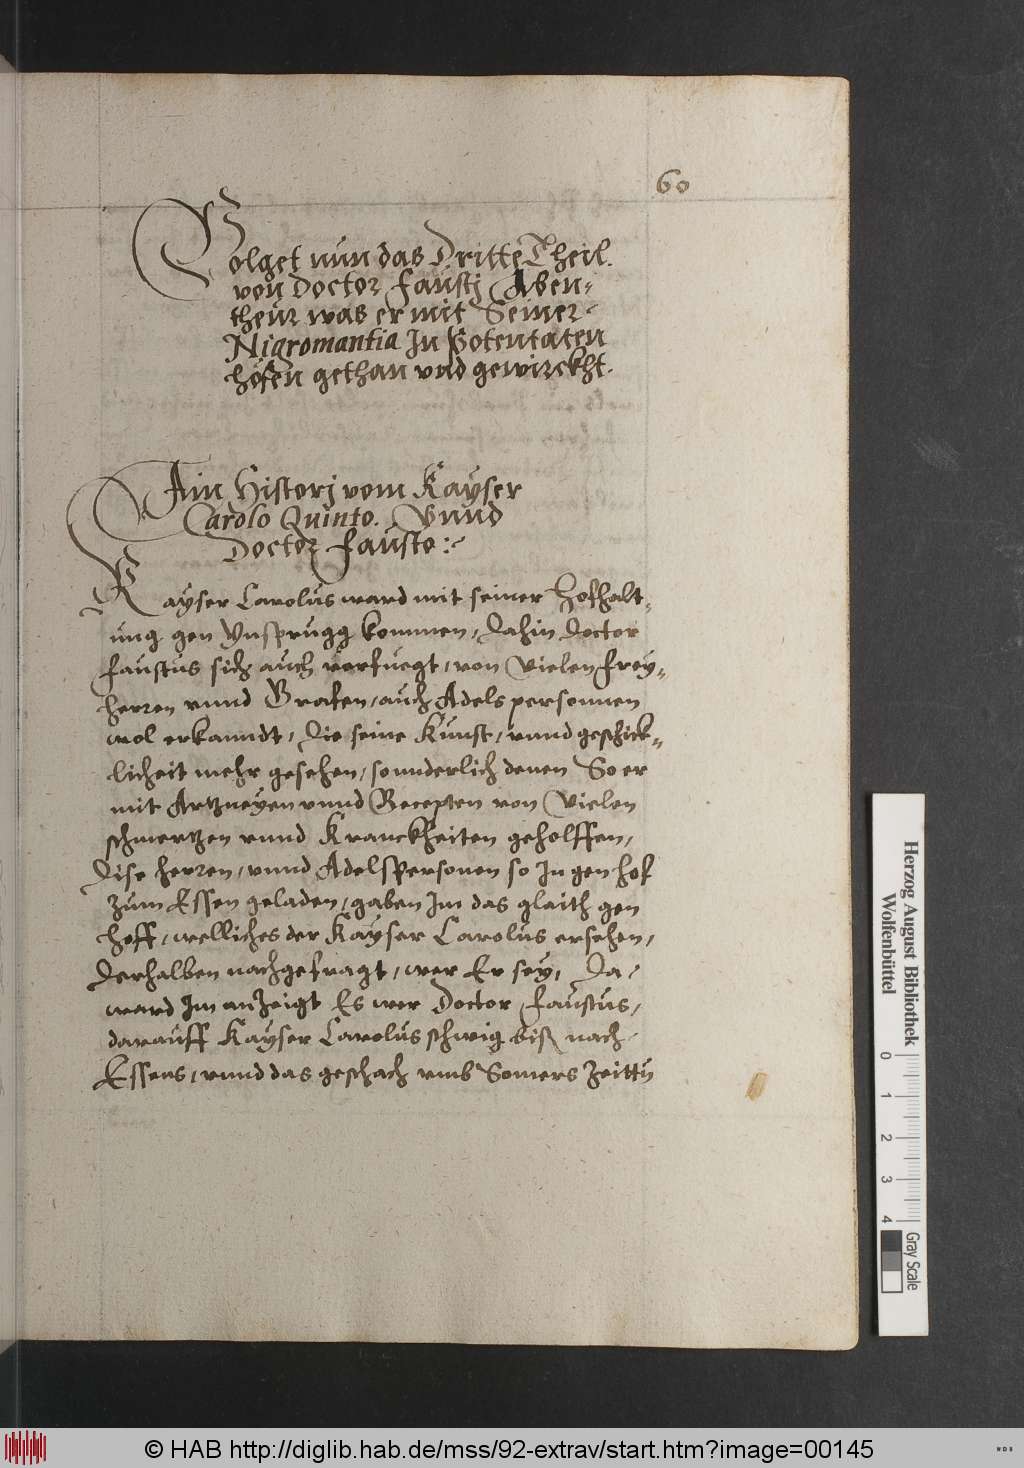 60
Volget nun das Dritte Theil.
von Doctor Faustj Aben-
theur was er mit Seiner
Nigromantia In Potentaten
höfen gethan vnd gewirckht.
Ain Historj vom Kayser
Carolo Quinto. Vnnd
Doctor Fausto:
Kayser Carolus ward mit seiner Hofhalt-
ung gen Ynsprugg kommen, dahin doctor
Faustus sich auch verfuegt, von Vielen Frey-
herren vnnd Grafen, auch Adels personnen
wol erkanndt, die seine Kunst, vnnd geschick-
licheit mehr gesehen, sonnderlich denen So er
mit Artzneyen vnnd Recepten von Vielen
schmertzen vnnd Kranckheiten geholffen,
Dise herren, vnnd Adelspersonen so In gen hof
zum Essen geladen, gaben Im das glaith gen
hoff, welliches der Kayser Carolus ersehen,
Derhalben nachgefragt, wer Er sey, Da
ward Im anzeigt Es wer Doctor Faustus,
darauff Kayser Carolus schwig biß nach
Essens, vnnd das geschach vmb Somers Zeitty
Herzog August Bibliothek
Wolfenbüttel
0 1 2 3 4
Gray Scale
© HAB http://diglib.hab.de/mss/92-extrav/start.htm?image=00145
WDB